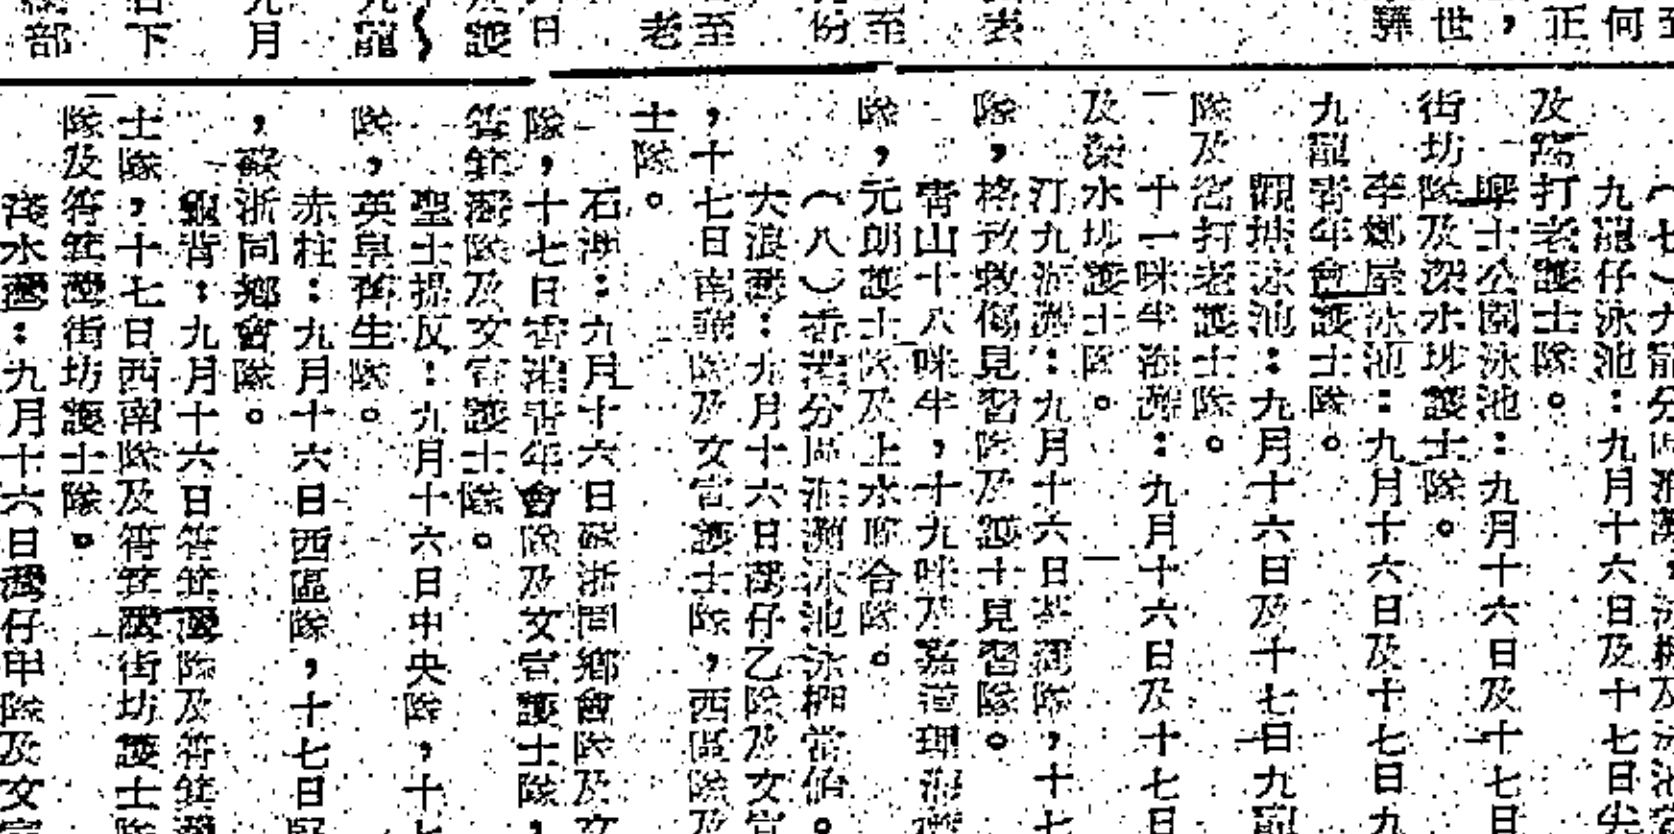 何
正
，
世
驊
去
至
份
至
老
日
護
九龍
九月
日下
部
（七）九龍分區海灘，泳棚及泳池
九龍仔泳池：九月十六日及十七日尖
及窩打老護士隊。
摩士公園泳池：九月十六日及十七日
街坊隊及深水埗護士隊。
李鄭屋泳池：九月十六日及十七日九
九龍青年會護士隊。
觀塘泳池：九月十六日及十七日九龍
隊及窩打老護士隊。
十一咪半海灘：九月十六日及十七日
及深水埗護士隊。
汀九海灘：九月十六日荃灣隊，十七
隊，格致救傷見習隊及護士見習隊。
青山十八咪半，十九咪及嘉道理海灘
隊，元朗護士隊及上水聯合隊。
（八）香港分區海灘泳池泳棚當值。
大浪灣：九月十六日灣仔乙隊及女官
，十七日南華隊及女官護士隊，西區隊及
士隊。
石澳：九月十六日蘇浙同鄉會隊及文
隊，十七日香港青年會隊及文官護士隊，
筲箕灣隊及文官護士隊。
聖士提反：九月十六日中央隊，十七
隊，英皇舊生隊。
赤柱：九月十六日西區隊，十七日
，蘇浙同鄉會隊。
龜背：九月十六日筲箕灣隊及筲箕灣
士隊，十七日西南隊及筲箕灣街坊護士隊
隊及筲箕灣街坊護士隊。
淺水灣：九月十六日灣仔甲隊及文官